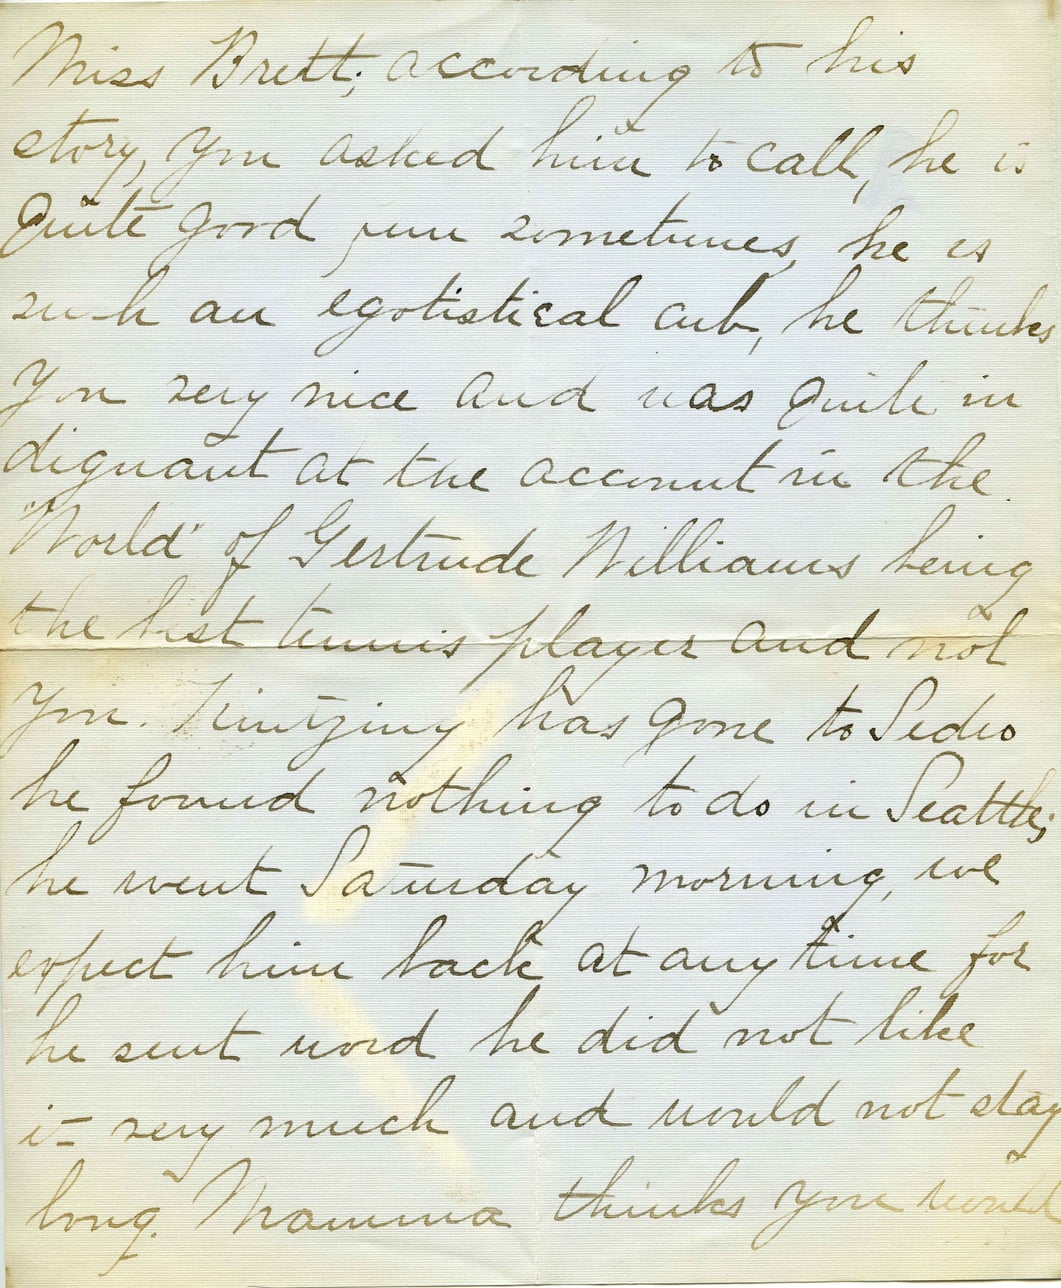 Miss Brett; according to his
story, you asked him to call, he is
Quite good fun sometimes, he is
such an egotistical cub, he thinks
you very nice and was Quite in
dignant at the account in the
"World" of Gertrude Williams being
the best tennis player and not
you. has gone to Sedro
he found nothing to do in Seattle;
he went Saturday morning, we
expect him back at any time for
he sent word he did not like
it very much and would not stay
long. Mamma thinks you would